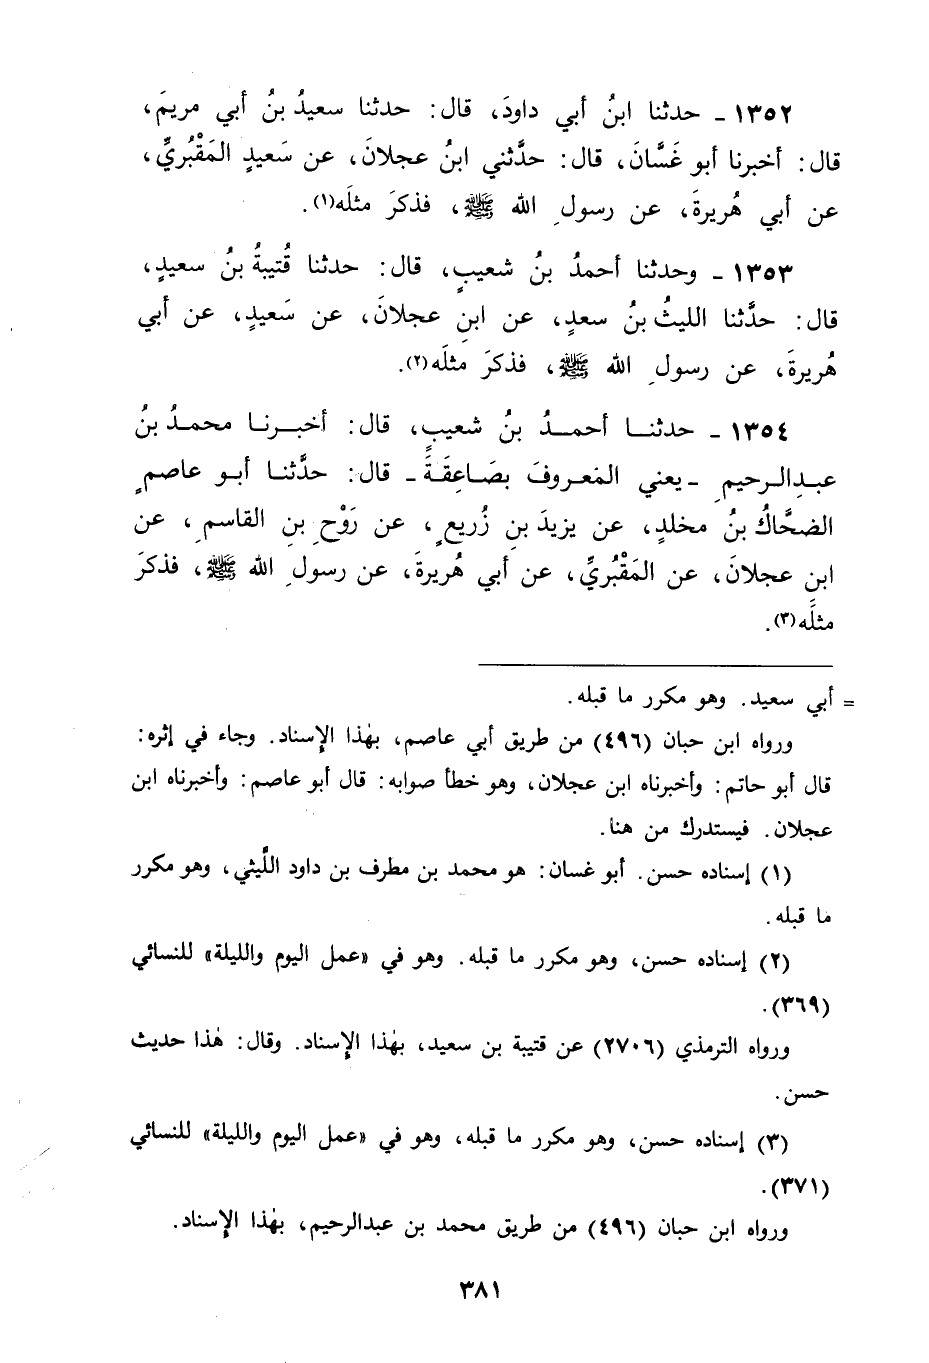 ١٣٥٢ ـ حدثنا ابنُ أبي داودَ، قال: حدثنا سعيدُ بنُ أبي مريمَ،
قال: أخبرنا أبو غَسَّانَ، قال: حدَّثني ابنُ عجلانَ، عن سَعيدٍ المَقْبُريِّ،
عن أبي هُريرةَ، عن رسولِ الله ﷺ، فذكرَ مثلَه(١).
١٣٥٣ ـ وحدثنا أحمدُ بنُ شعيبٍ، قال: حدثنا قُتيبةُ بنُ سعيدٍ،
قال: حدَّثنا الليثُ بنُ سعدٍ، عن ابنِ عجلانَ، عن سَعيدٍ، عن أبي
هُريرةَ، عن رسولِ الله ﷺ، فذكرَ مثلَه(٢).
١٣٥٤ ـ حدثنا أحمدُ بنُ شعيبٍ، قال: أخبرنا محمدُ بنُ
عبدِالرحيمِ ـ يعني المعروفَ بصَاعِقَةَ ـ قال: حدَّثنا أبو عاصمٍ
الضحَّاكُ بنُ مخلدٍ، عن يزيدَ بنِ زُريعٍ، عن رَوْحِ بنِ القاسمِ، عن
ابنِ عجلانَ، عن المَقْبُريِّ، عن أبي هُريرةَ، عن رسولِ الله ﷺ، فذكرَ
مثلَه(٣).
= أبي سعيد. وهو مكرر ما قبله.
ورواه ابن حبان (٤٩٦) من طريق أبي عاصم، بهٰذا الإِسناد. وجاء في إثره:
قال أبو حاتم: وأخبرناه ابن عجلان، وهو خطأ صوابه: قال أبو عاصم: وأخبرناه ابن
عجلان. فيستدرك من هنا.
(١) إسناده حسن. أبو غسان: هو محمد بن مطرف بن داود اللَّيثي، وهو مكرر
ما قبله.
(٢) إسناده حسن، وهو مكرر ما قبله. وهو في «عمل اليوم والليلة» للنسائي
(٣٦٩).
ورواه الترمذي (٢٧٠٦) عن قتيبة بن سعيد، بهٰذا الإِسناد. وقال: هٰذا حديث
حسن.
(٣) إسناده حسن، وهو مكرر ما قبله، وهو في «عمل اليوم والليلة» للنسائي
(٣٧١).
ورواه ابن حبان (٤٩٦) من طريق محمد بن عبدالرحيم، بهٰذا الإِسناد.
٣٨١